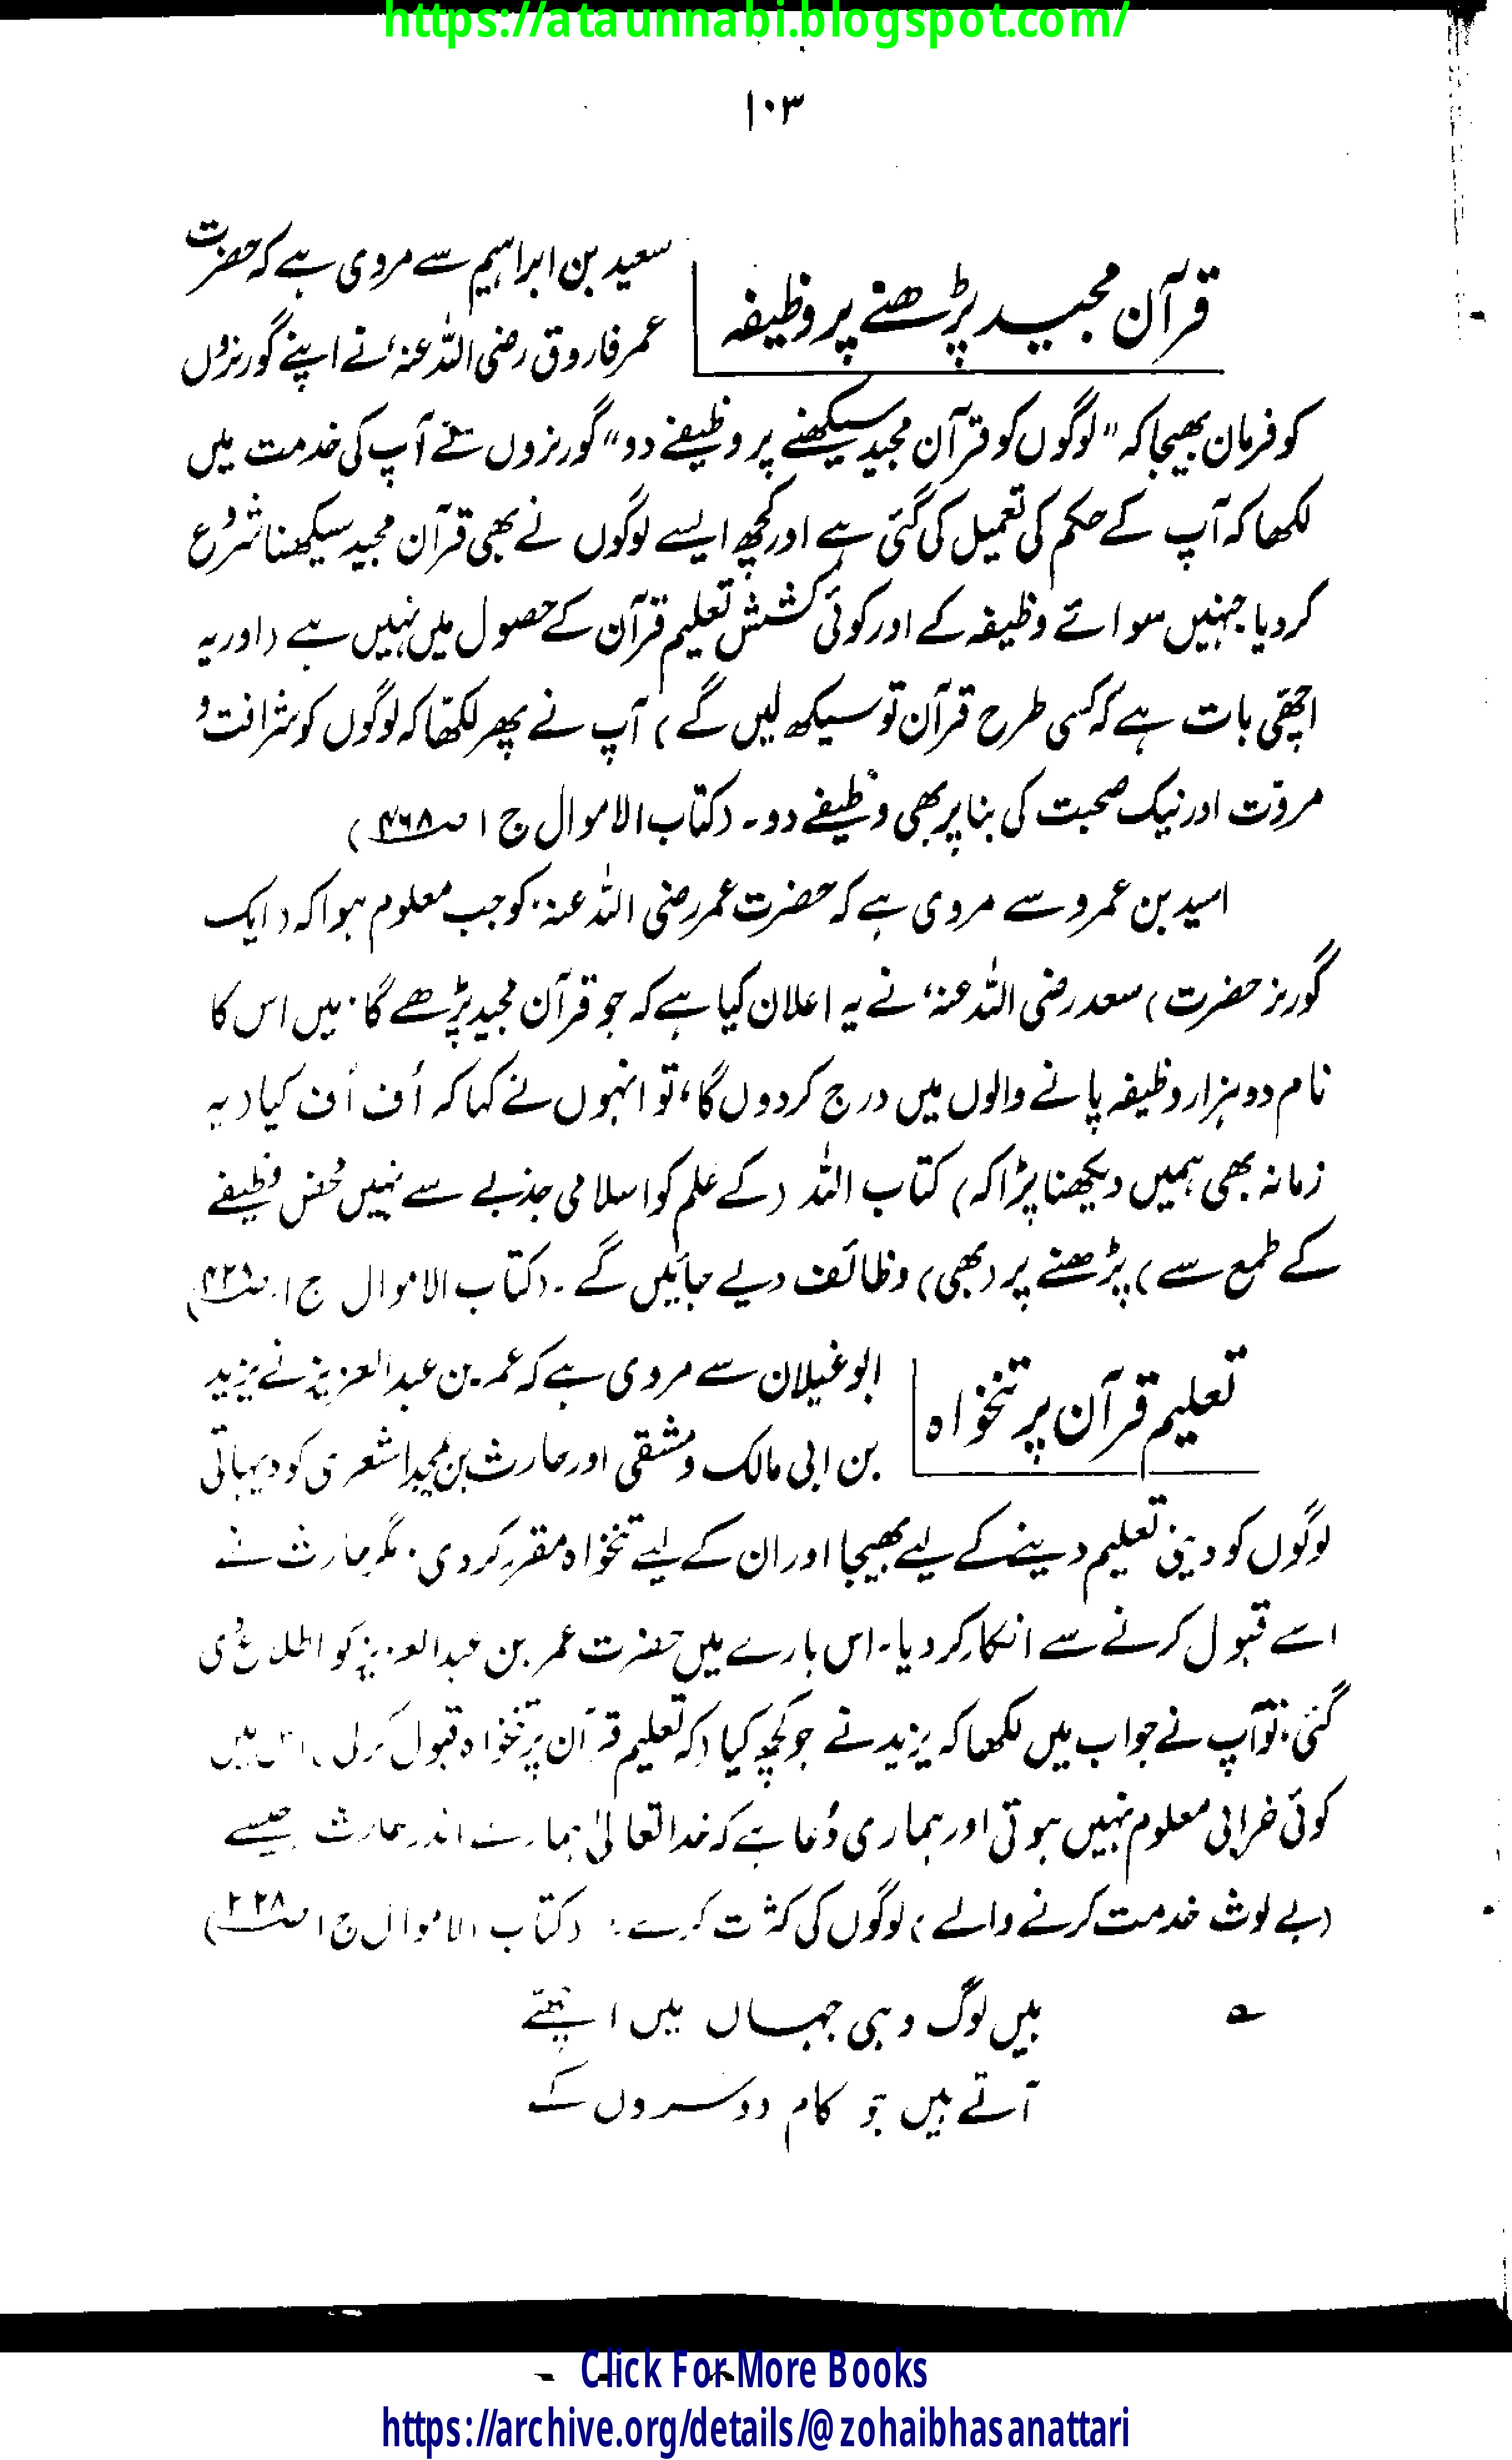 https://ataunnabi.blogspot.com/
۱۰۳
قرآن مجید پڑھنے پر وظیفہ
سعید بن ابراہیم سے مروی ہے کہ حضرت
عمر فاروق رضی اللہ عنہ، نے اپنے گورنروں
کو فرمان بھیجا کہ "لوگوں کو قرآن مجید سیکھنے پر وظیفے دو" گورنروں نے آپ کی خدمت میں
لکھا کہ آپ کے حکم کی تعمیل کی گئی ہے اور کچھ ایسے لوگوں نے بھی قرآن مجید سیکھنا شروع
کر دیا جنہیں سوائے وظیفہ کے اور کوئی کشش تعلیم قرآن کے حصول میں نہیں ہے (اور یہ
اچھی بات ہے کہ کسی طرح قرآن تو سیکھ لیں گے) آپ نے پھر لکھا کہ لوگوں کو شرافت و
مروّت اور نیک صحبت کی بنا پر بھی وظیفے دو۔ (کتاب الاموال ج ۱ ص۴۶۸)
اسید بن عمرو سے مروی ہے کہ حضرت عمر رضی اللہ عنہ، کو جب معلوم ہوا کہ (ایک
گورنر حضرت) سعد رضی اللہ عنہ، نے یہ اعلان کیا ہے کہ جو قرآن مجید پڑھے گا۔ میں اس کا
نام دو ہزار وظیفہ پانے والوں میں درج کر دوں گا، تو انہوں نے کہا کہ اُف اُف کیا (یہ
زمانہ بھی ہمیں دیکھنا پڑا کہ) کتاب اللہ (کے علم کو اسلامی جذبے سے نہیں محض وظیفے
کے طمع سے) پڑھنے پر (بھی) وظائف دیے جائیں گے۔ (کتاب الاموال ج ۱۔ ص۴۲۸)
تعلیم قرآن پر تنخواہ
ابو غیلان سے مروی ہے کہ عمر بن عبدالعزیز نے یزید
بن ابی مالک دمشقی اور حارث بن مجید اشعری کو دیہاتی
لوگوں کو دینی تعلیم دینے کے لیے بھیجا اور ان کے لیے تنخواہ مقرر کر دی۔ مگر حارث نے
اسے قبول کرنے سے انکار کر دیا۔ اس بارے میں حضرت عمر بن عبدالعزیز کو اطلاع دی
گئی۔ تو آپ نے جواب میں لکھا کہ یزید نے جو کچھ کیا (کہ تعلیم قرآن پر تنخواہ قبول کر لی) اس میں
کوئی خرابی معلوم نہیں ہوتی اور ہماری دُعا ہے کہ خدا تعالیٰ ہمارے اندر حارث جیسے
(بے لوث خدمت کرنے والے) لوگوں کی کثرت کرے۔ (کتاب الاموال ج ۱ ص۲۲۸)
ہیں لوگ وہی جہاں میں اچھے
آتے ہیں جو کام دوسروں کے
Click For More Books
https://archive.org/details/@zohaibhasanattari